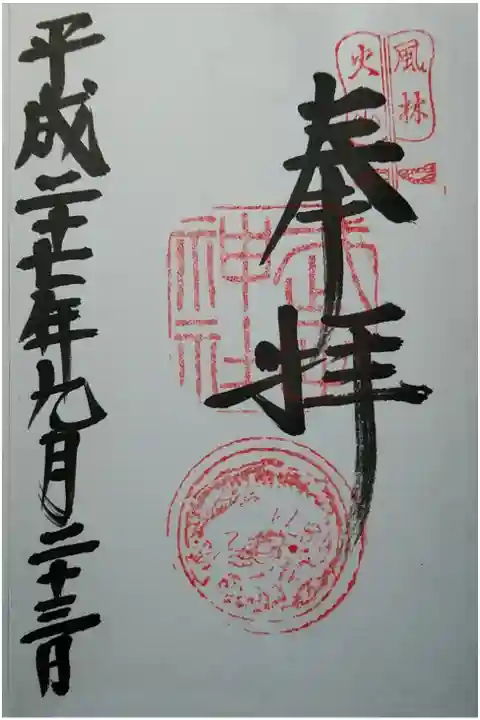 風林
火山
奉拝
武田神社
平成二十七年九月二十三日